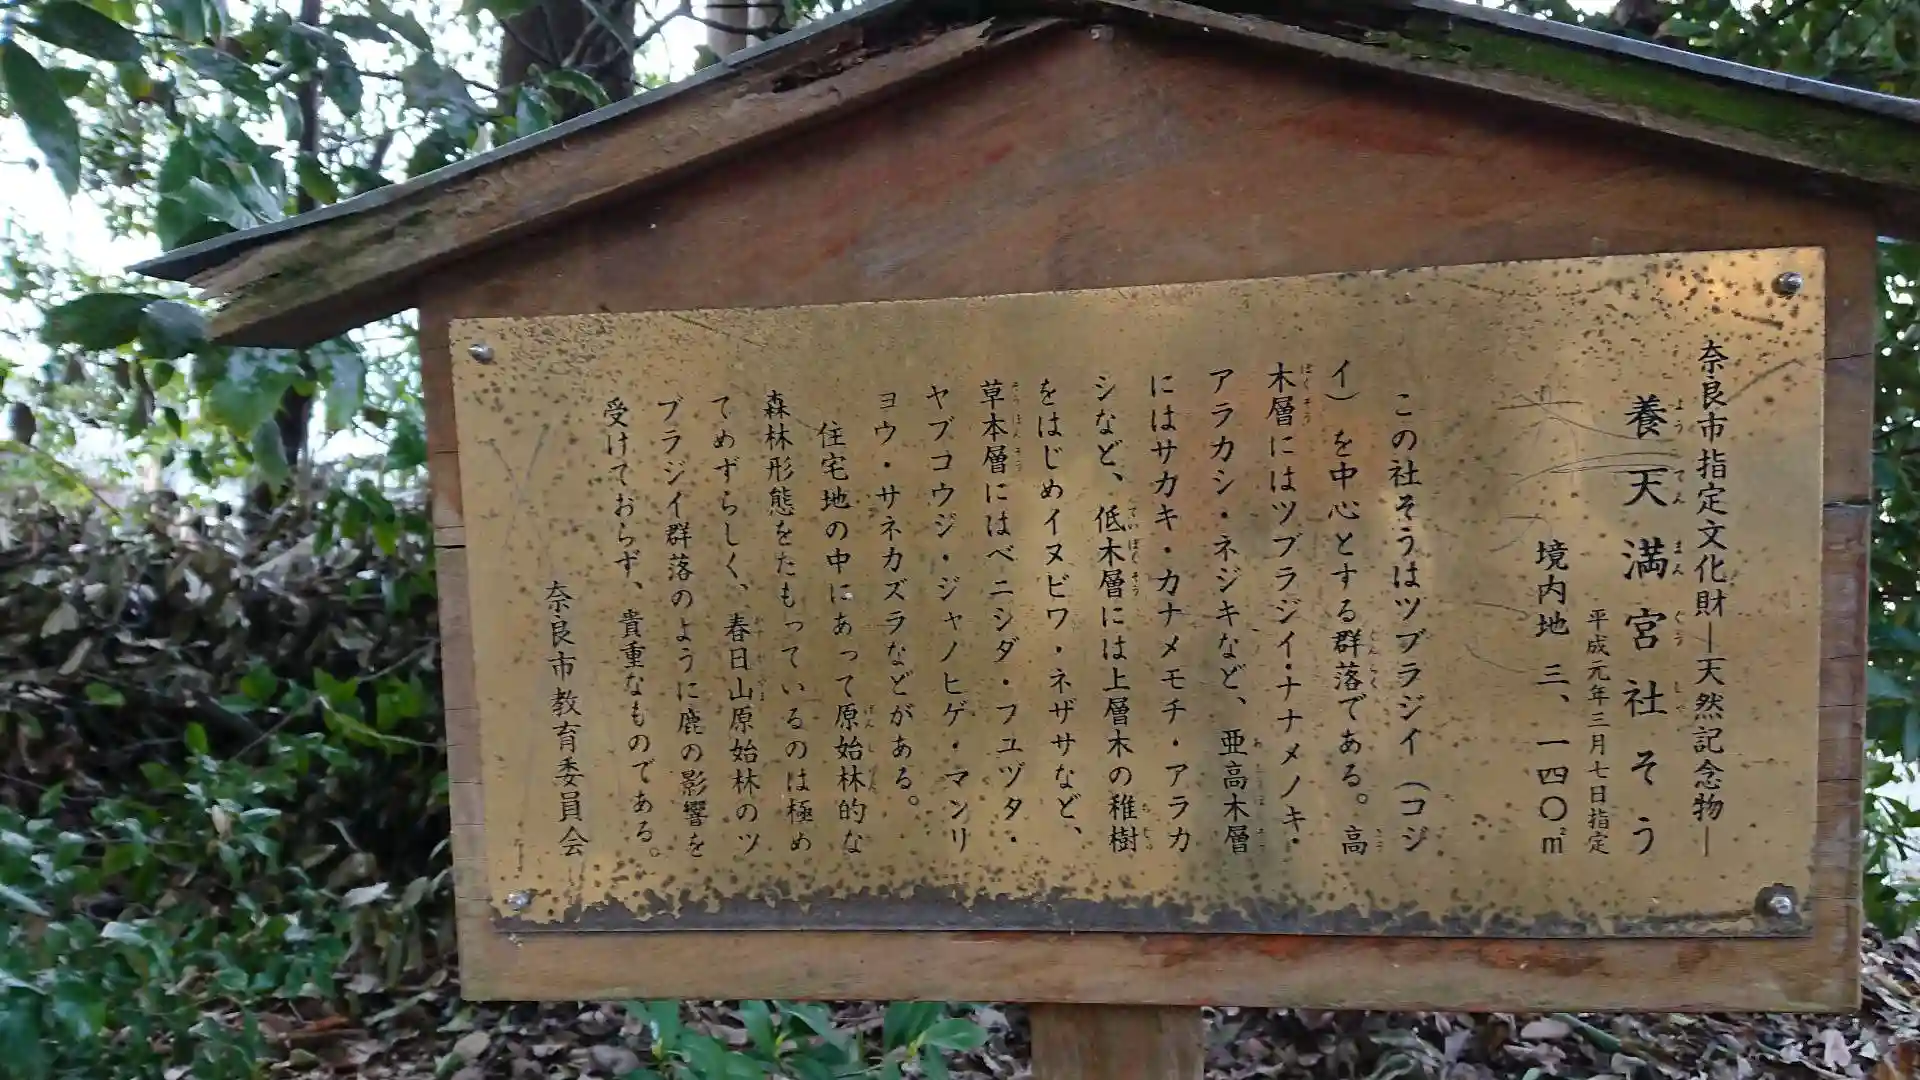 奈良市指定文化財―天然記念物―
養天満宮社そう
平成元年三月七日指定
境内地 三、一四〇㎡
この社そうはツブラジイ（コジ
イ）を中心とする群落である。高
木層にはツブラジイ・ナナメノキ・
アラカシ・ネジキなど、亜高木層
にはサカキ・カナメモチ・アラカ
シなど、低木層には上層木の稚樹
をはじめイヌビワ・ネザサなど、
草本層にはベニシダ・フユヅタ・
ヤブコウジ・ジャノヒゲ・マンリ
ョウ・サネカズラなどがある。
住宅地の中にあって原始林的な
森林形態をたもっているのは極め
てめずらしく、春日山原始林のツ
ブラジイ群落のように鹿の影響を
受けておらず、貴重なものである。
奈良市教育委員会